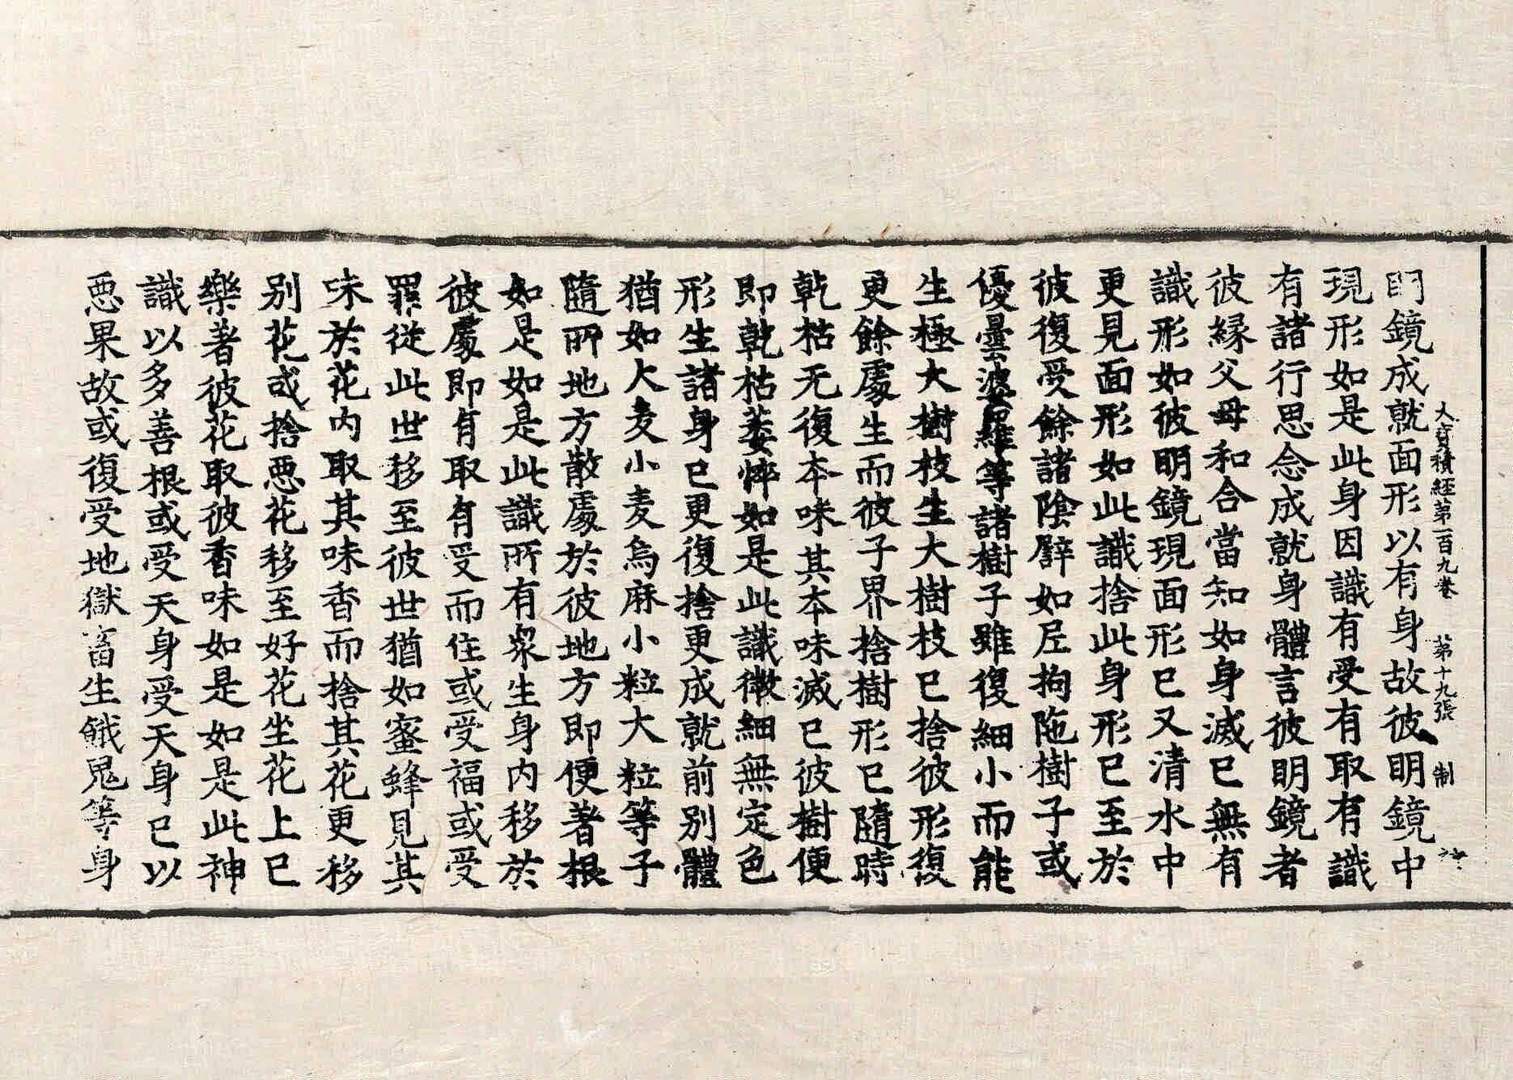 大寶積經第一百九卷　第十九張　制
明鏡成就面形以有身故彼明鏡中
現形如是此身因識有受有取有識
有諸行思念成就身體言彼明鏡者
彼緣父母和合當知如身滅已無有
識形如彼明鏡現面形已又清水中
更見面形如此識捨此身形已至於
彼復受餘諸陰譬如尼拘陁樹子或
優曇婆羅等諸樹子雖復細小而能
生極大樹枝生大樹枝已捨彼形復
更餘處生而彼子界捨樹形已隨時
乾枯无復本味其本味滅已彼樹便
即乾枯萎悴如是此識微細無定色
形生諸身已更復捨更成就前別體
猶如大麦小麦烏麻小粒大粒等子
隨所地方散處於彼地方即便著根
如是如是此識所有衆生身內移於
彼處即有取有受而住或受福或受
罪從此世移至彼世猶如蜜蜂見其
味於花內取其味香而捨其花更移
別花或捨惡花移至好花坐花上已
樂著彼花取彼香味如是如是此神
識以多善根或受天身受天身已以
惡果故或復受地獄畜生餓鬼等身